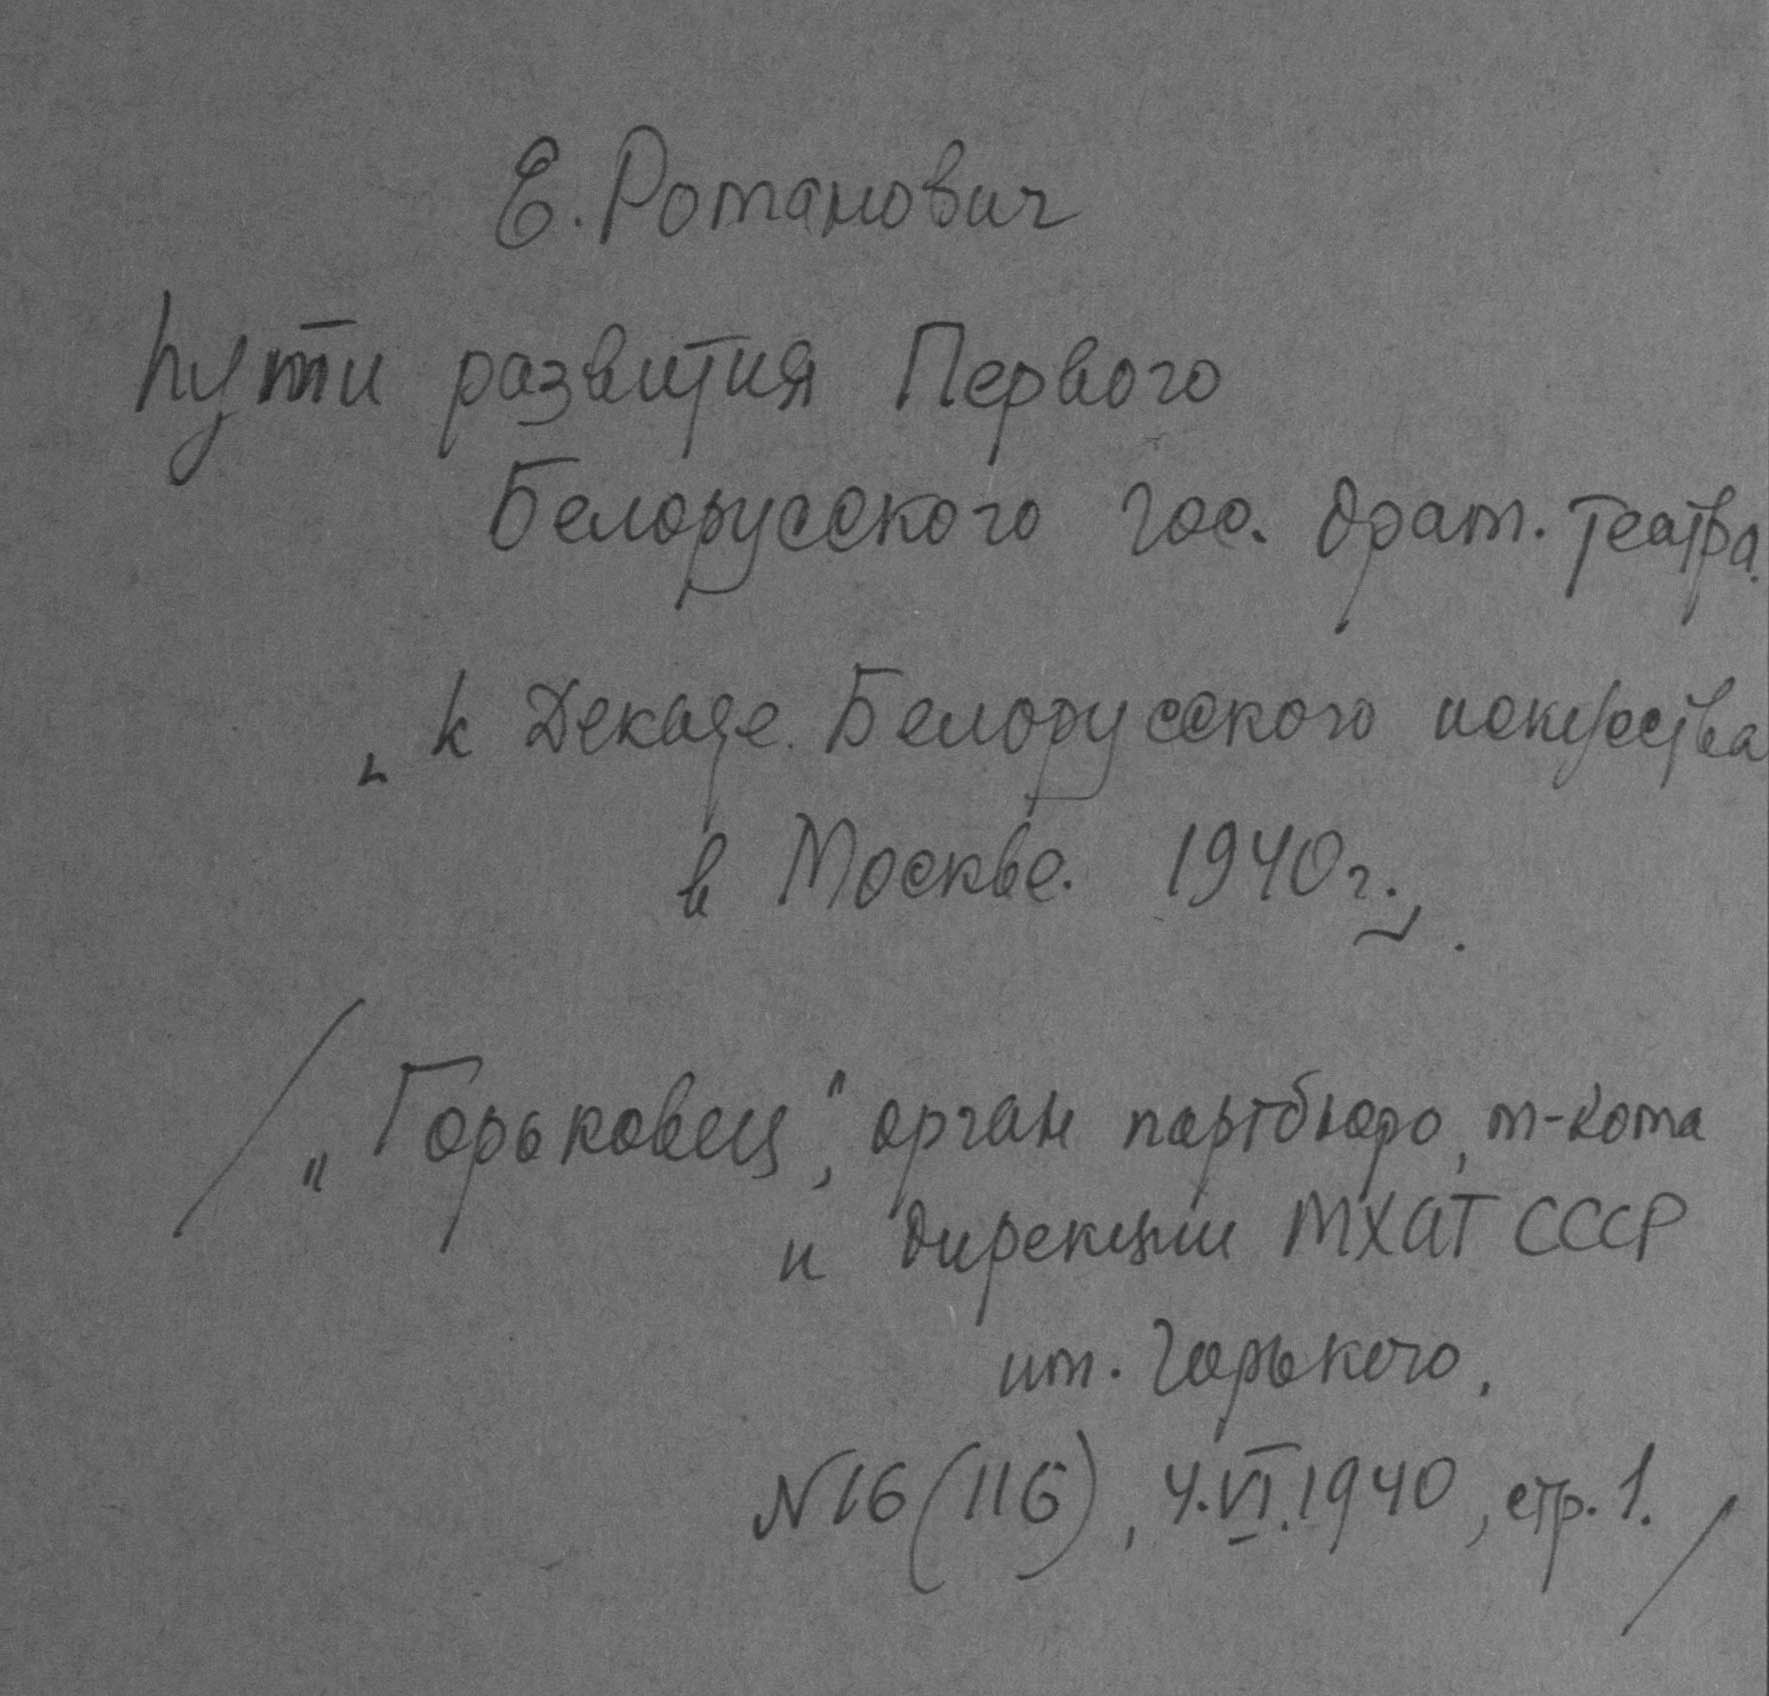 Е. Романович
Пути развития Первого
Белорусского Гос. драм. театра.
„к Декаде Белорусского искусства
в Москве. 1940 г.".
/„Горьковец", орган партбюро, м-кома
и дирекции МХАТ СССР
им. Горького.
N16 (116), 4.VI.1940, стр. 1./